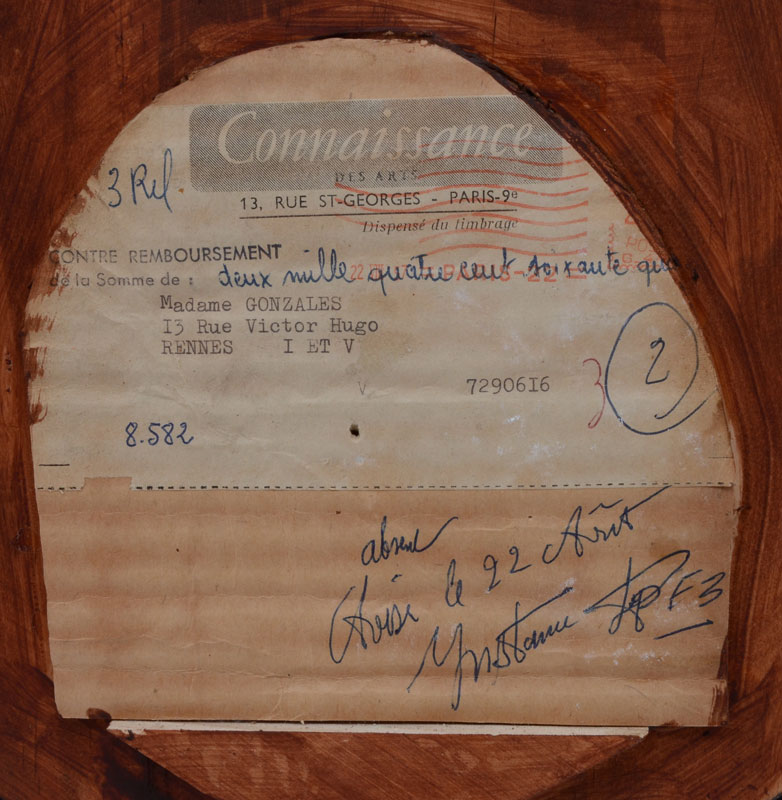 Connaissance
DES ARTS
3 Rel
13, RUE ST-GEORGES - PARIS-9e
Dispensé du timbrage
CONTRE REMBOURSEMENT
de la Somme de : deux mille quatre cent soixante
22 PARIS-22
Madame GONZALES
I3 Rue Victor Hugo
RENNES I ET V
V 72906I6 3
2
8.582
absent
Avisé le 22 Août
Instance F3